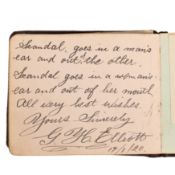 Scandal, goes in a man's
ear and out the other.
Scandal goes in a woman's
ear and out of her mouth
All very best wishes.
Yours Sincerely
G H Elliott